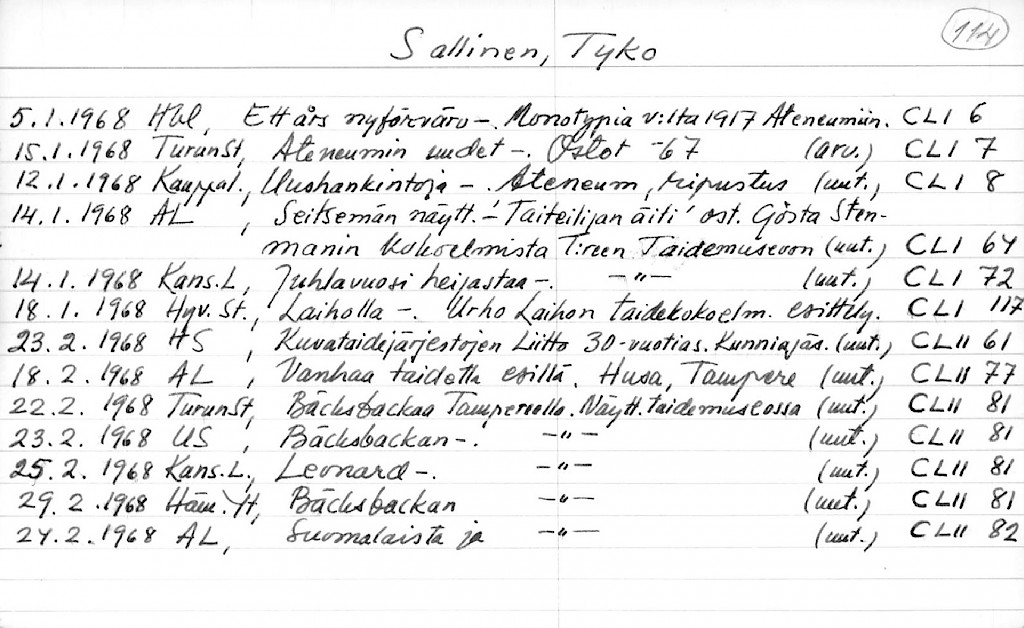 114
Sallinen, Tyko
5.1.1968 Hbl, Ett års nyförvärv -. Monotypia v:lta 1917 Ateneumiin. CLI 6
15.1.1968 TurunSt, Ateneumin uudet -. Ostot -67 (arv.) CLI 7
12.1.1968 Kauppal., Uushankintoja -. Ateneum, ripustus (uut.) CLI 8
14.1.1968 AL, Seitsemän näytt. - 'Taiteilijan äiti' ost. Gösta Sten-
manin kokoelmista T:reen Taidemuseoon (uut.) CLI 64
14.1.1968 Kans.L, Juhlavuosi heijastaa -. -"- (uut.) CLI 72
18.1.1968 Hyv.St., Laiholla -. Urho Laihon taidekokoelm. esittely. CLI 117
23.2.1968 HS, Kuvataidejärjestöjen Liitto 30-vuotias. Kunniajäs. (uut.) CLII 61
18.2.1968 AL, Vanhaa taidetta esillä. Husa, Tampere (uut.) CLII 77
22.2.1968 TurunSt, Bäcksbackaa Tampereella. Näytt. taidemuseossa (uut.) CLII 81
23.2.1968 US, Bäcksbackan -. -"- (uut.) CLII 81
25.2.1968 Kans.L., Leonard -. -"- (uut.) CLII 81
29.2.1968 Häm.Yt, Bäcksbackan -"- (uut.) CLII 81
24.2.1968 AL, Suomalaista ja -"- (uut.) CLII 82